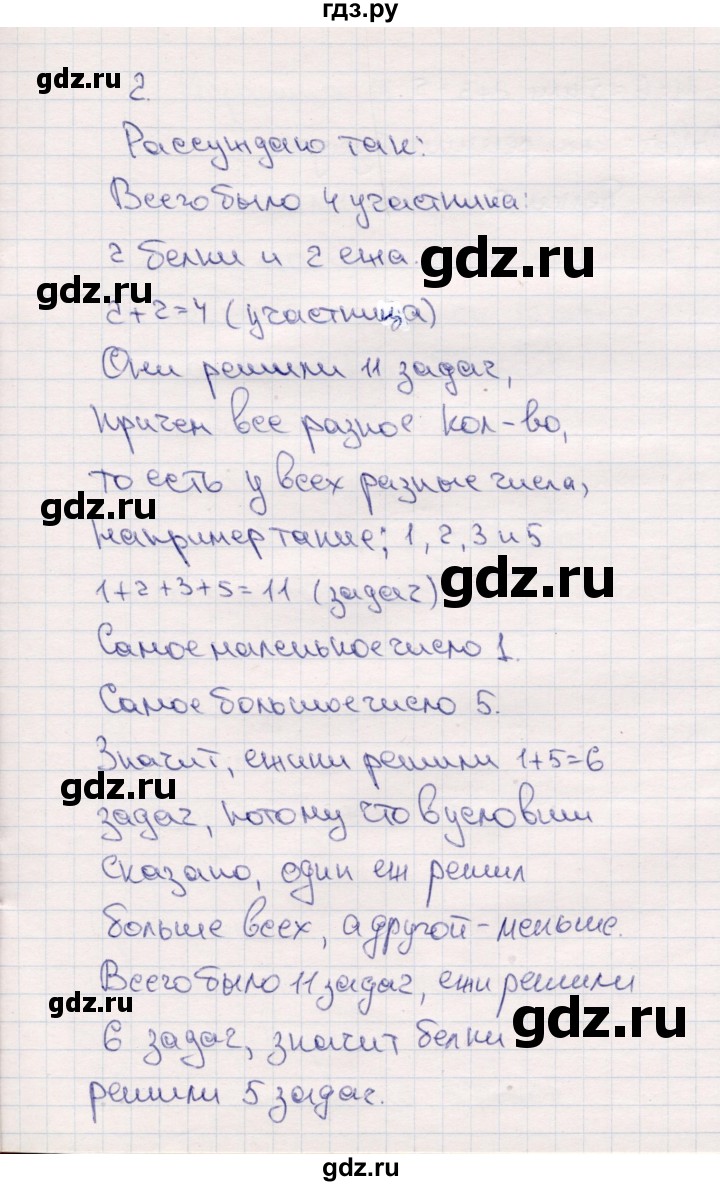 гдз.ру
gdz.ru
2.
Рассуждаю так:
Всего было 4 участника:
2 белки и 2 ежа.
gdz.ru
gdz.ru
2+2=4 (участница)
Они решили 11 задач,
причем все разное кол-во,
то есть у всех разные числа,
gdz.ru
например такие: 1, 2, 3 и 5
1+2+3+5=11 (задач)
gdz.ru
Самое маленькое число 1.
Самое большое число 5.
Значит, ежики решили 1+5=6
gdz.ru
задач, потому что в условии
сказано, один еж решил
больше всех, а другой - меньше.
Всего было 11 задач, ежи решили
gdz.ru
6 задач, значит белки
gdz.ru
решили 5 задач.
gdz.ru